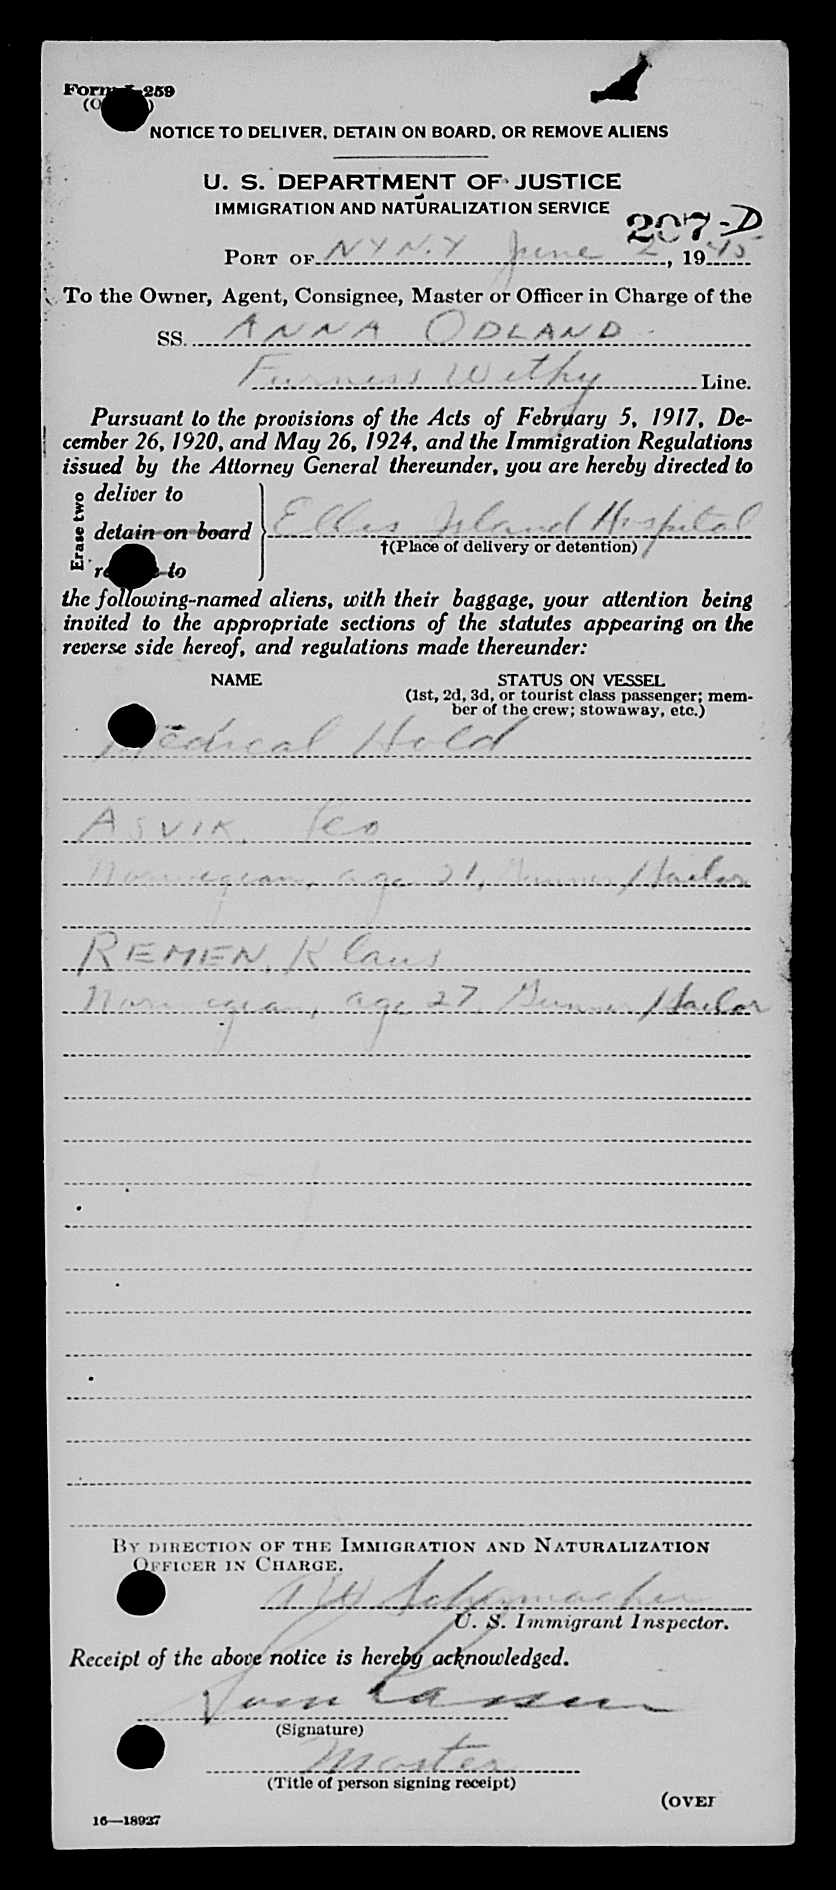 Form I-259
NOTICE TO DELIVER, DETAIN ON BOARD, OR REMOVE ALIENS
U. S. DEPARTMENT OF JUSTICE
IMMIGRATION AND NATURALIZATION SERVICE
207-D
PORT OF NY N.Y June 2, 1945
To the Owner, Agent, Consignee, Master or Officer in Charge of the
SS. ANNA ODLAND
Furness Withy Line.
Pursuant to the provisions of the Acts of February 5, 1917, De-
cember 26, 1920, and May 26, 1924, and the Immigration Regulations
issued by the Attorney General thereunder, you are hereby directed to
Erase two
deliver to
detain on board
to
Ellis Island Hospital
†(Place of delivery or detention)
the following-named aliens, with their baggage, your attention being
invited to the appropriate sections of the statutes appearing on the
reverse side hereof, and regulations made thereunder:
NAME STATUS ON VESSEL
(1st, 2d, 3d, or tourist class passenger; mem-
ber of the crew; stowaway, etc.)
Medical Hold
ASVIK, Peo
Norwegian, age 21, Gunner/Sailor
REMEN, Klaus
Norwegian, age 27, Gunner/Sailor
BY DIRECTION OF THE IMMIGRATION AND NATURALIZATION
OFFICER IN CHARGE.
Schumacher
U. S. Immigrant Inspector.
Receipt of the above notice is hereby acknowledged.
(Signature)
Master
(Title of person signing receipt)
(OVER
16—18927